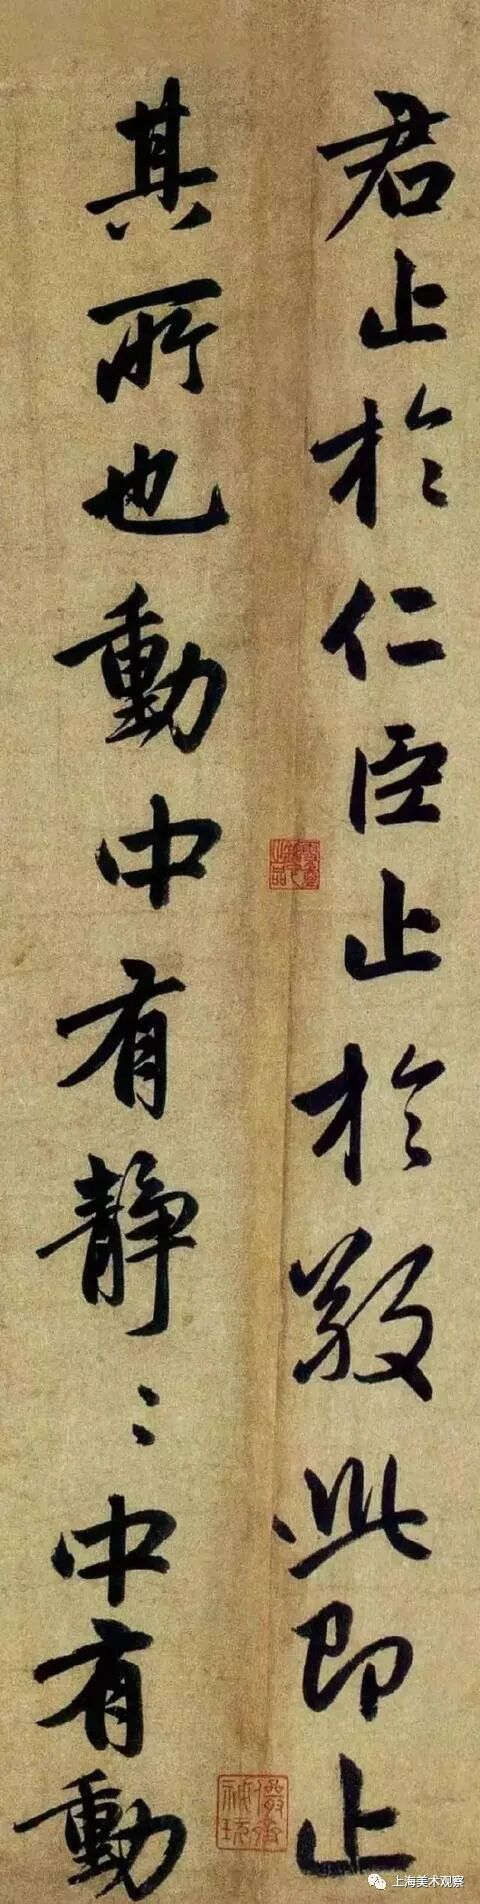 君止於仁臣止於敬此即止
其所也動中有靜〻中有動
上海美术观察